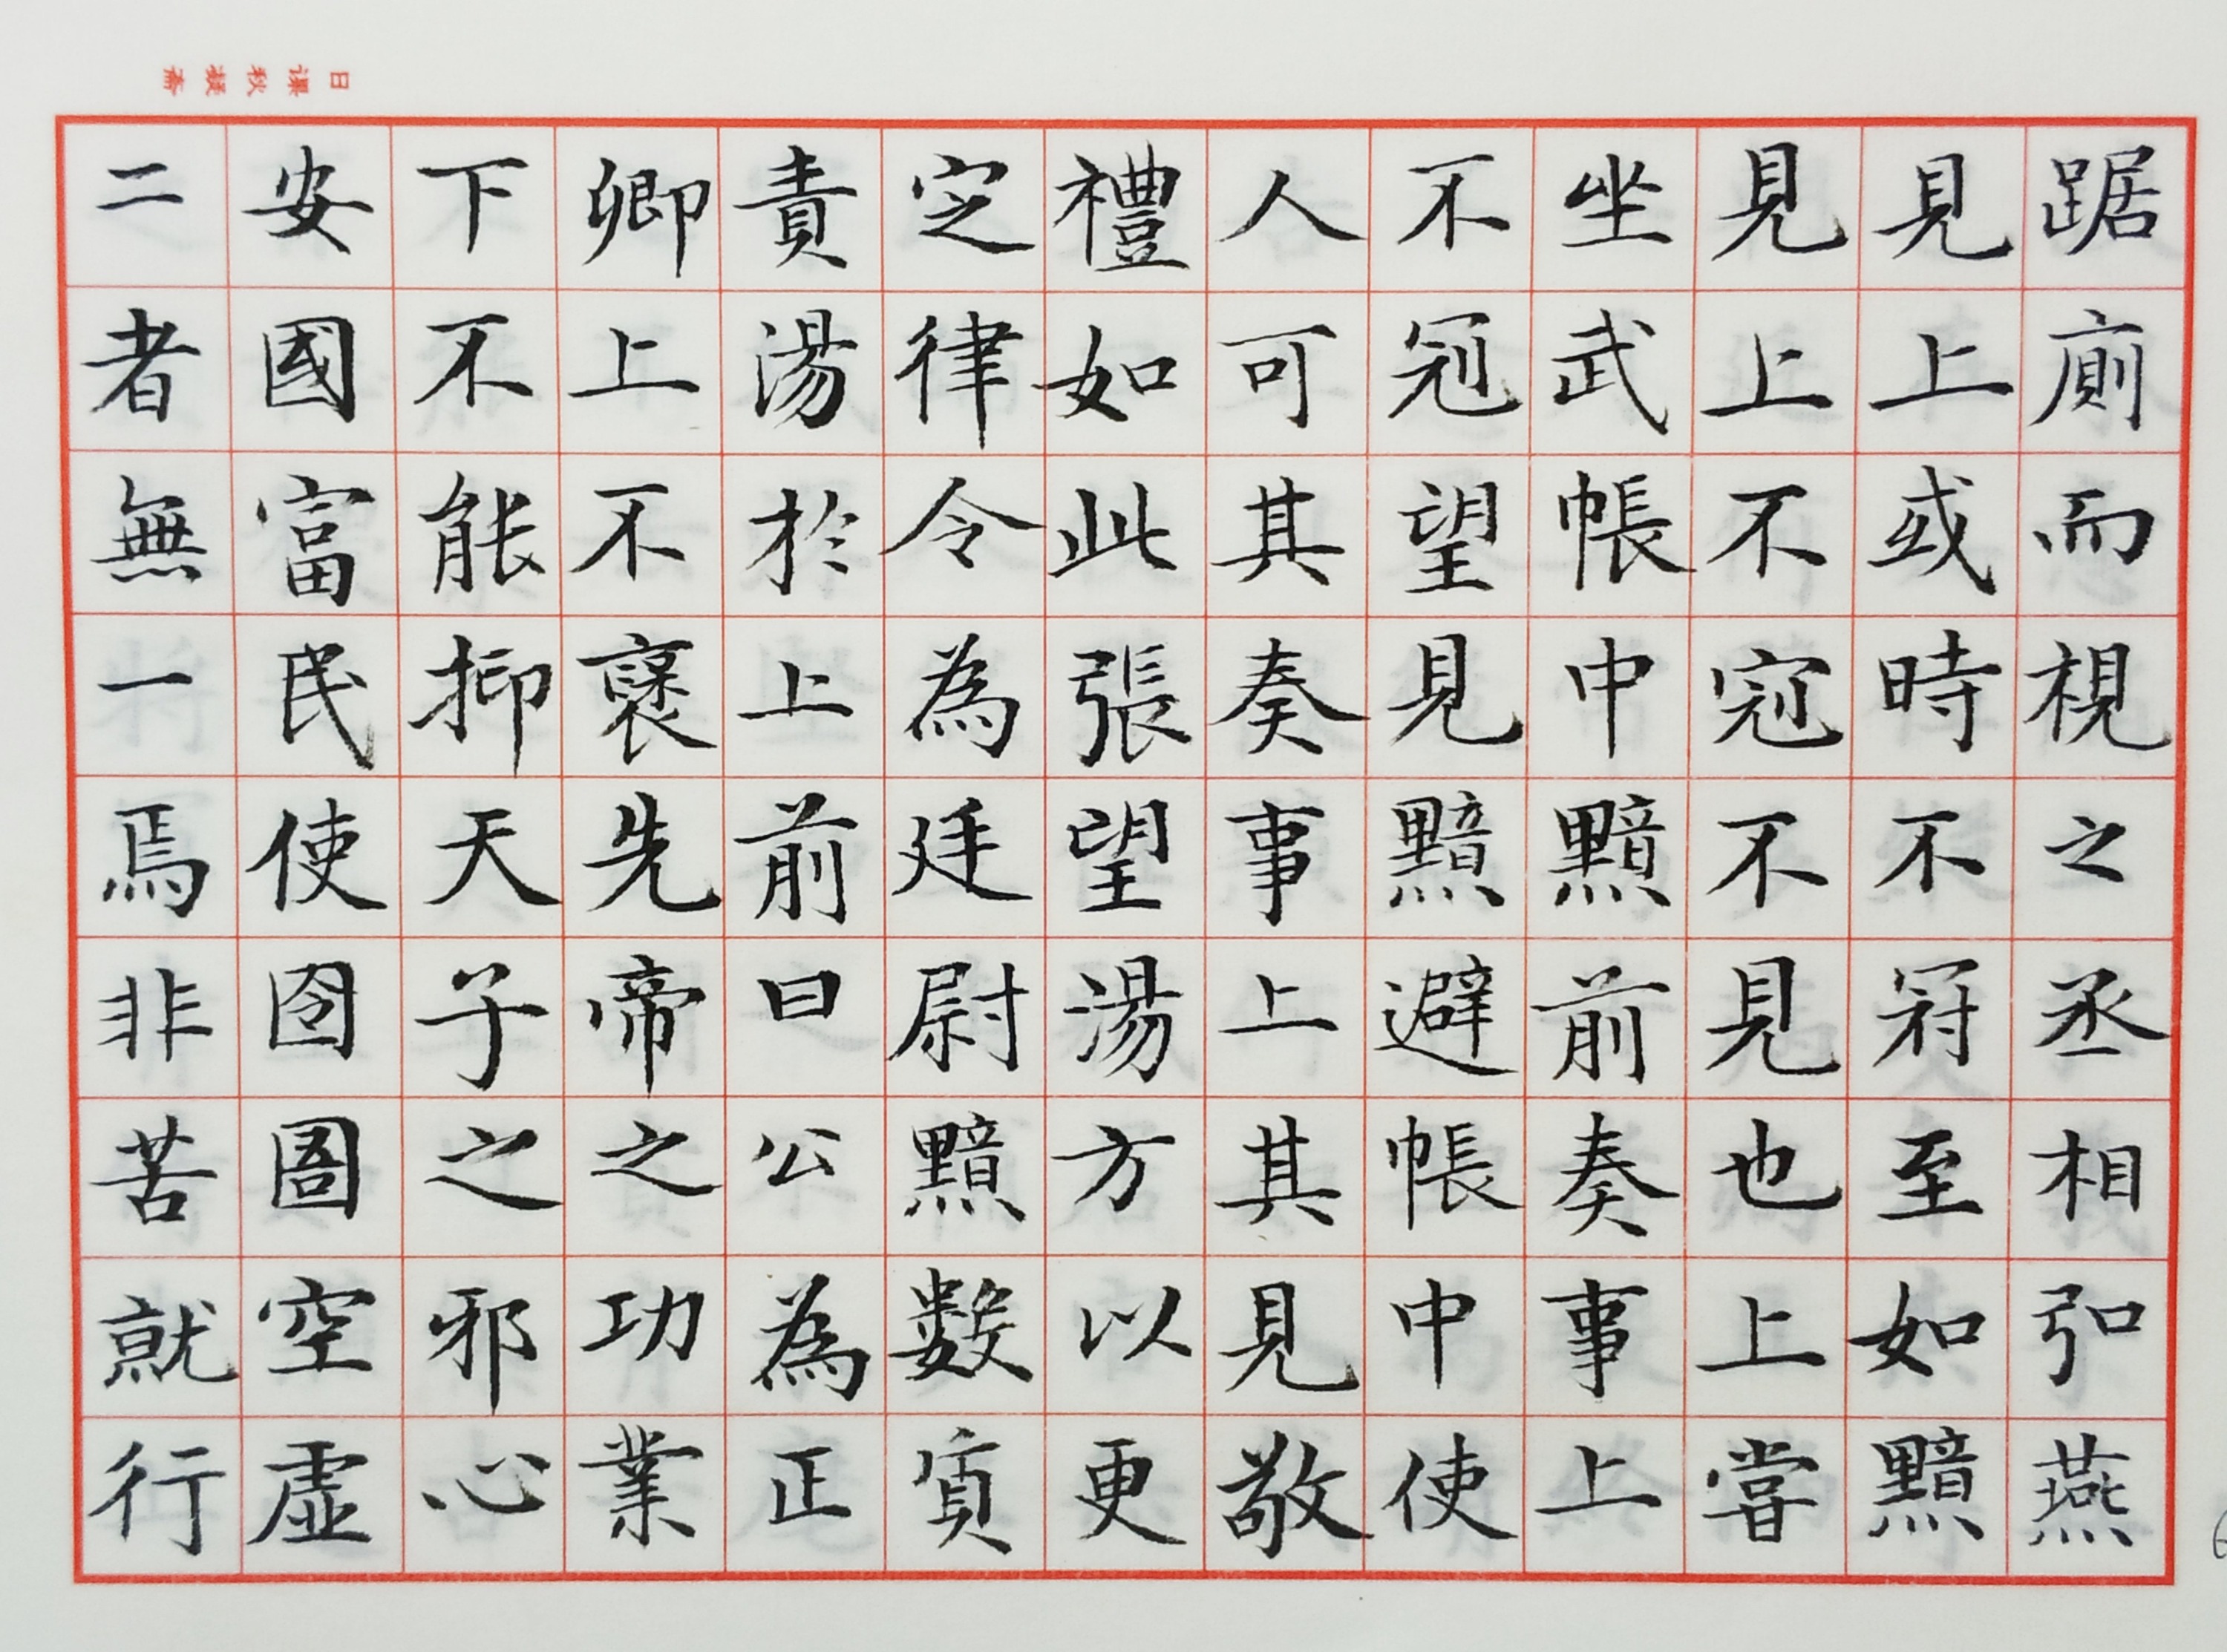 日课秋凝斋
踞廁而視之丞相弘燕
見上或時不冠至如黯
見上不冠不見也上嘗
坐武帳中黯前奏事上
不冠望見黯避帳中使
人可其奏事上其見敬
禮如此張望湯方以更
定律令為廷尉黯數質
責湯於上前曰公為正
卿上不褒先帝之功業
下不能抑天子之邪心
安國富民使囹圄空虛
二者無一焉非苦就行